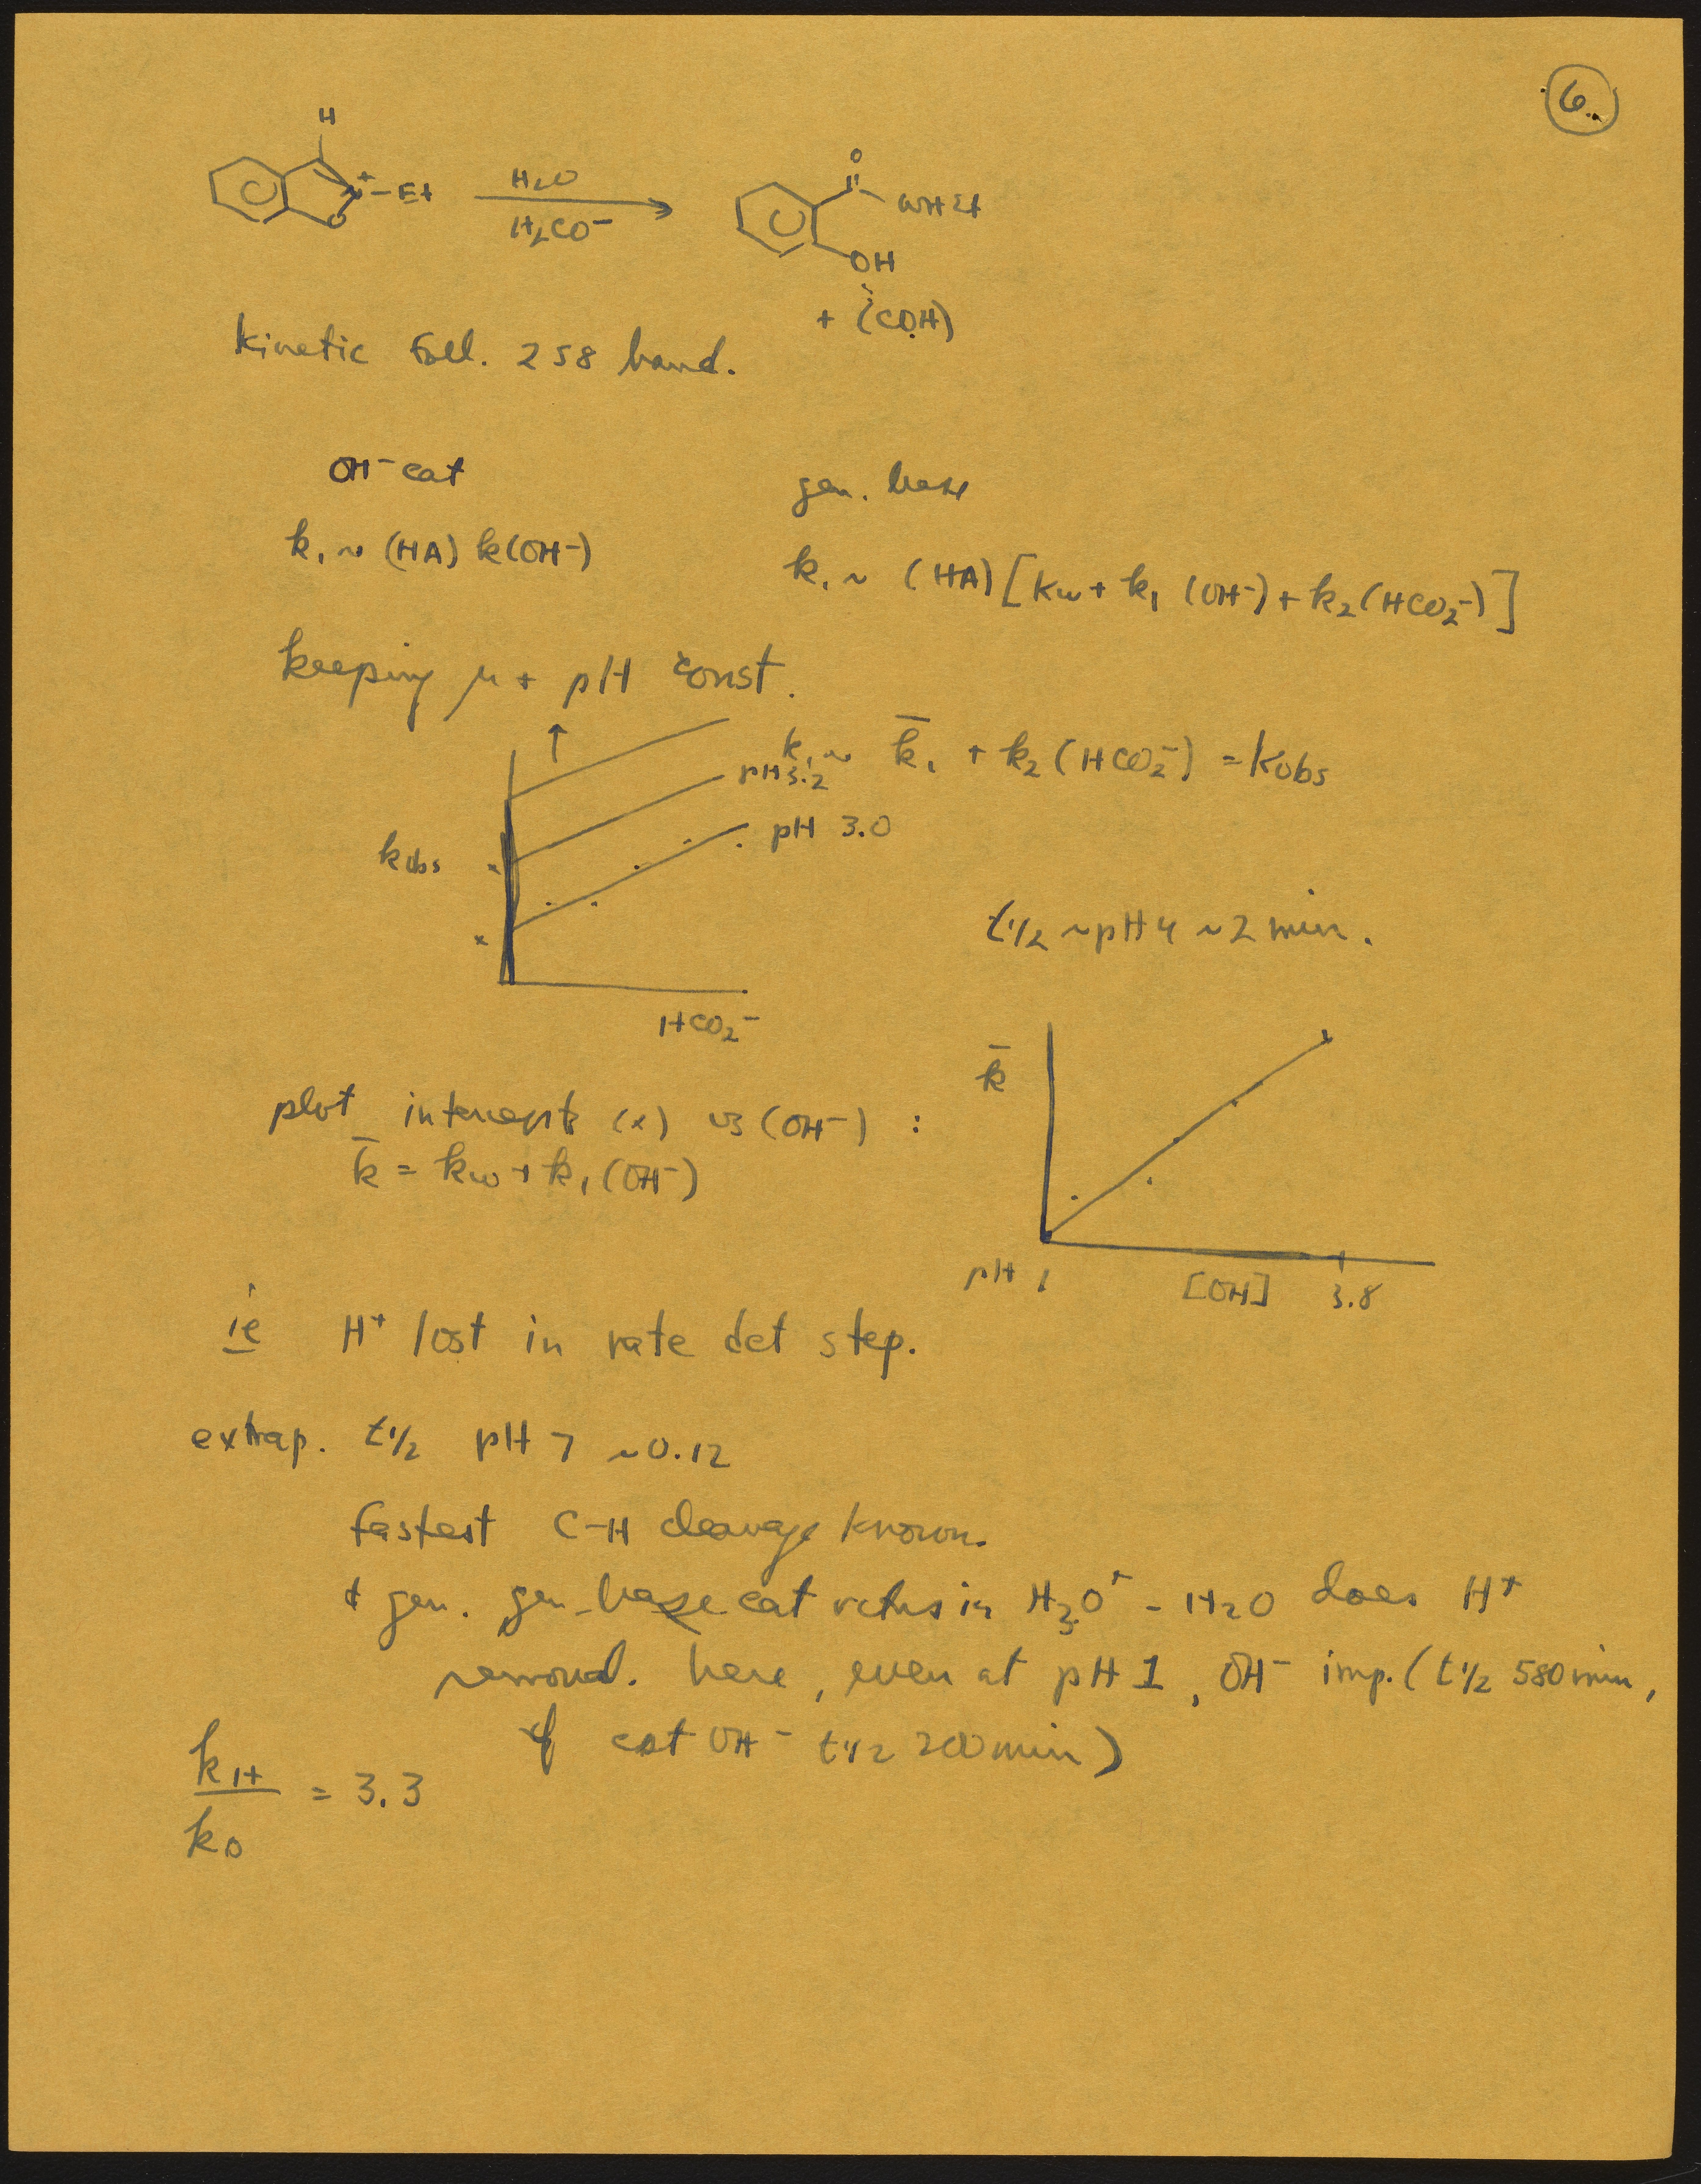 6.
H
N+ — Et
O
H2O
H2CO−
O
NHEt
OH
+ (CO2H)
kinetic foll. 258 band.
OH− cat
gen. base
k1 ~ (HA) k(OH−)
k1 ~ (HA) [Kw + k1 (OH−) + k2(HCO2−)]
keeping μ + pH const.
k1 ~ k̄1 + k2 (HCO2−) = Kobs
pH 3.2
pH 3.0
kobs
HCO2−
t1/2 ~pH 4 ~2 min.
k̄
pH 1
[OH]
3.8
plot intercepts (x) vs (OH−) :
k̄ = kw + k1 (OH−)
ie H+ lost in rate det step.
extrap. t1/2 pH 7 ~0.12
fastest C-H cleavage known.
+ gen. gen-base cat rctns in H3O+ - H2O does H+
removal. here, even at pH 1, OH− imp. (t1/2 580 min,
if cat OH− t1/2 200 min)
kH/kD = 3.3